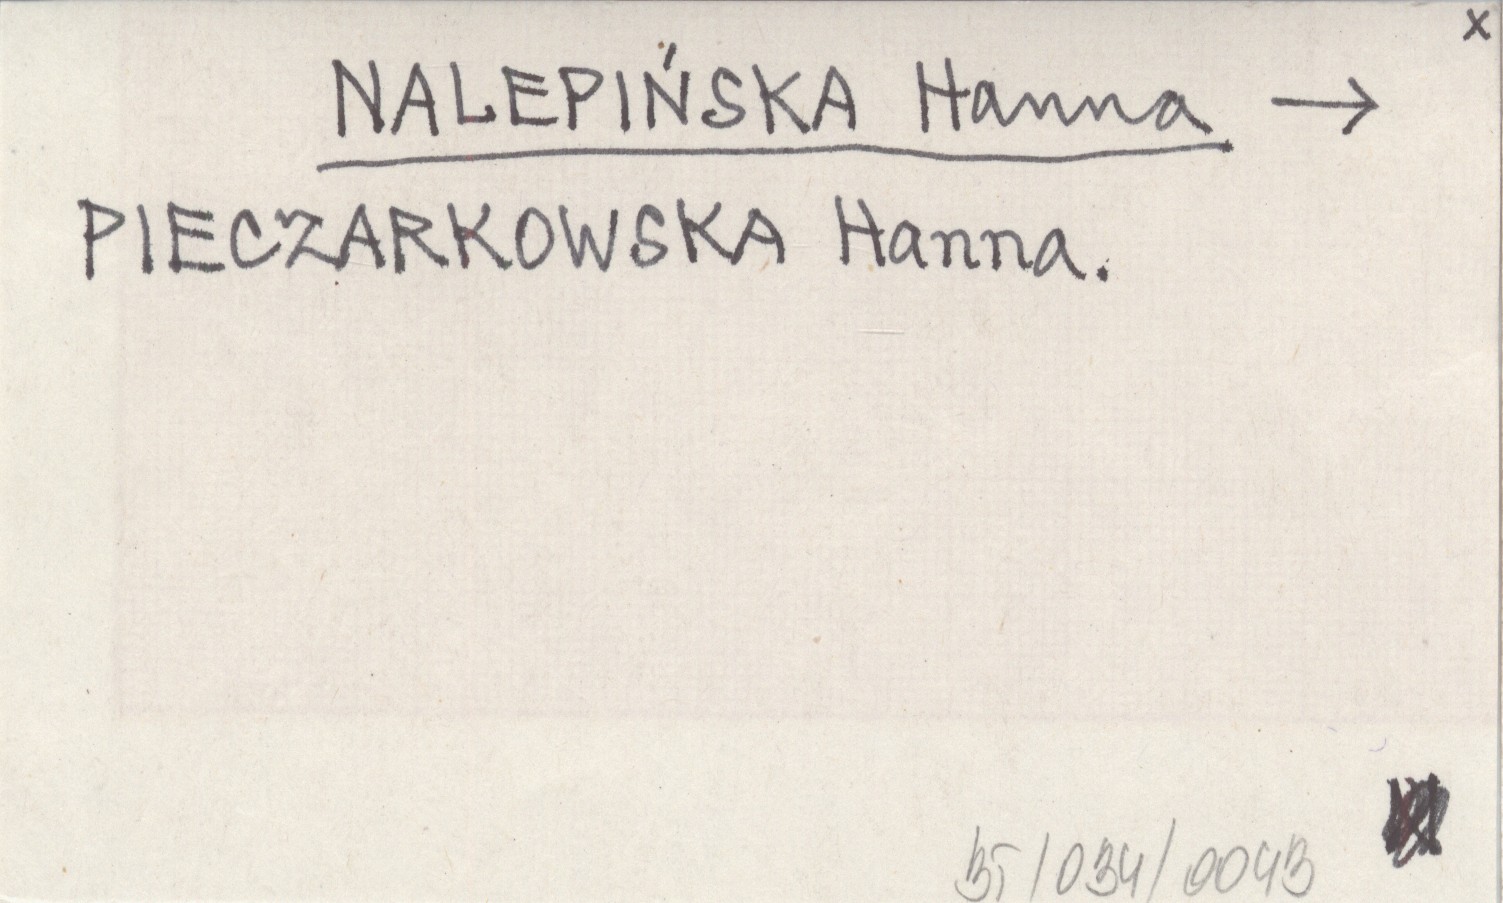 x
NALEPIŃSKA Hanna →
PIECZARKOWSKA Hanna.
35/034/0043